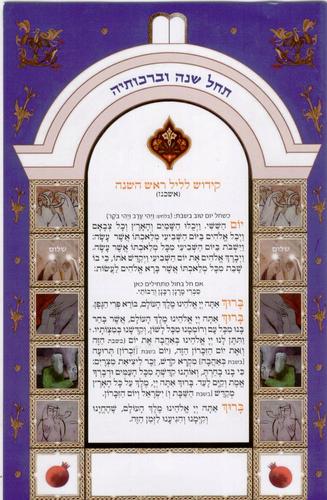 תחל שנה וברכותיה
קידוש לליל ראש השנה
(אשכנז)
כשחל יום טוב בשבת: (בלחש: וַיְהִי עֶרֶב וַיְהִי בֹקֶר)
יוֹם הַשִּׁשִּׁי. וַיְכֻלּוּ הַשָּׁמַיִם וְהָאָרֶץ וְכָל צְבָאָם.
וַיְכַל אֱלֹהִים בַּיּוֹם הַשְּׁבִיעִי מְלַאכְתּוֹ אֲשֶׁר עָשָׂה.
וַיִּשְׁבֹּת בַּיּוֹם הַשְּׁבִיעִי מִכָּל מְלַאכְתּוֹ אֲשֶׁר עָשָׂה:
וַיְבָרֶךְ אֱלֹהִים אֶת יוֹם הַשְּׁבִיעִי וַיְקַדֵּשׁ אֹתוֹ, כִּי בוֹ
שָׁבַת מִכָּל מְלַאכְתּוֹ אֲשֶׁר בָּרָא אֱלֹהִים לַעֲשׂוֹת:
שלום
שלום
אם חל בחול מתחילים כאן
סַבְרִי מָרָנָן וְרַבָּנָן וְרַבּוֹתַי:
בָּרוּךְ אַתָּה יְיָ אֱלֹהֵינוּ מֶלֶךְ הָעוֹלָם, בּוֹרֵא פְּרִי הַגָּפֶן.
בָּרוּךְ אַתָּה יְיָ אֱלֹהֵינוּ מֶלֶךְ הָעוֹלָם, אֲשֶׁר בָּחַר
בָּנוּ מִכָּל עָם וְרוֹמְמָנוּ מִכָּל לָשׁוֹן, וְקִדְּשָׁנוּ בְּמִצְוֹתָיו.
וַתִּתֶּן לָנוּ יְיָ אֱלֹהֵינוּ בְּאַהֲבָה אֶת יוֹם (בשבת: הַשַּׁבָּת הַזֶּה
וְאֶת יוֹם) הַזִּכָּרוֹן הַזֶּה, יוֹם (בשבת: זִכְרוֹן) תְּרוּעָה
(בשבת: בְּאַהֲבָה) מִקְרָא קֹדֶשׁ, זֵכֶר לִיצִיאַת מִצְרָיִם.
כִּי בָנוּ בָחַרְתָּ וְאוֹתָנוּ קִדַּשְׁתָּ מִכָּל הָעַמִּים וּדְבָרְךָ
אֱמֶת וְקַיָּם לָעַד. בָּרוּךְ אַתָּה יְיָ, מֶלֶךְ עַל כָּל הָאָרֶץ
מְקַדֵּשׁ (בשבת: הַשַּׁבָּת וְ) יִשְׂרָאֵל וְיוֹם הַזִּכָּרוֹן.
בָּרוּךְ אַתָּה יְיָ אֱלֹהֵינוּ מֶלֶךְ הָעוֹלָם, שֶׁהֶחֱיָנוּ
וְקִיְּמָנוּ וְהִגִּיעָנוּ לַזְּמַן הַזֶּה.